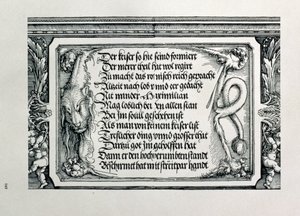 Der keiser so hie seind formiert
Der merer thail hat wol regirt
Zu macht das romisch reich gepracht
Alzeit nach lob vnnd eer gedacht
Nit minder Maximilian
Mag loblich bey allen stan
Bei im souil geschehen ist
Als man von keinem keiser list
Treflicher ding vnnd grosser that
Dartzu got im geholffen hat
Dann er den hochberumbten standt
Beschirmet hat mit streitpar handt